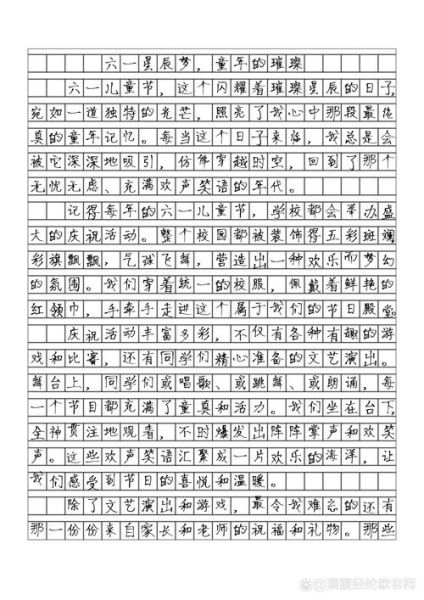 六一星辰梦，童年的璀璨
六一儿童节，这个闪耀着璀璨星辰的日子，
宛如一道独特的光芒，照亮了我心中那段最纯
真的童年记忆。每当这个日子来临，我总是会
被它深深地吸引，仿佛穿越时空，回到了那个
无忧无虑、充满欢声笑语的年代。
记得每年的六一儿童节，学校都会举办盛
大的庆祝活动。整个校园都被装饰得五彩斑斓，
彩旗飘飘，气球飞舞，营造出一种欢乐而梦幻
的氛围。我们穿着统一的校服，佩戴着鲜艳的
红领巾，手牵手走进这个属于我们的节日殿堂。
庆祝活动丰富多彩，不仅有各种有趣的游
戏和比赛，还有同学们精心准备的文艺演出。
舞台上，同学们或唱歌、或跳舞、或朗诵，每
一个节目都充满了童真和活力。我们坐在台下，
全神贯注地观看，不时爆发出阵阵掌声和欢笑
声。这些欢声笑语汇聚成一片欢乐的海洋，让
我们感受到节日的喜悦和温暖。
除了文艺演出和游戏，最令我难忘的还有
那一份份来自家长和老师的祝福和礼物。那些
@满腹经纶歌老师